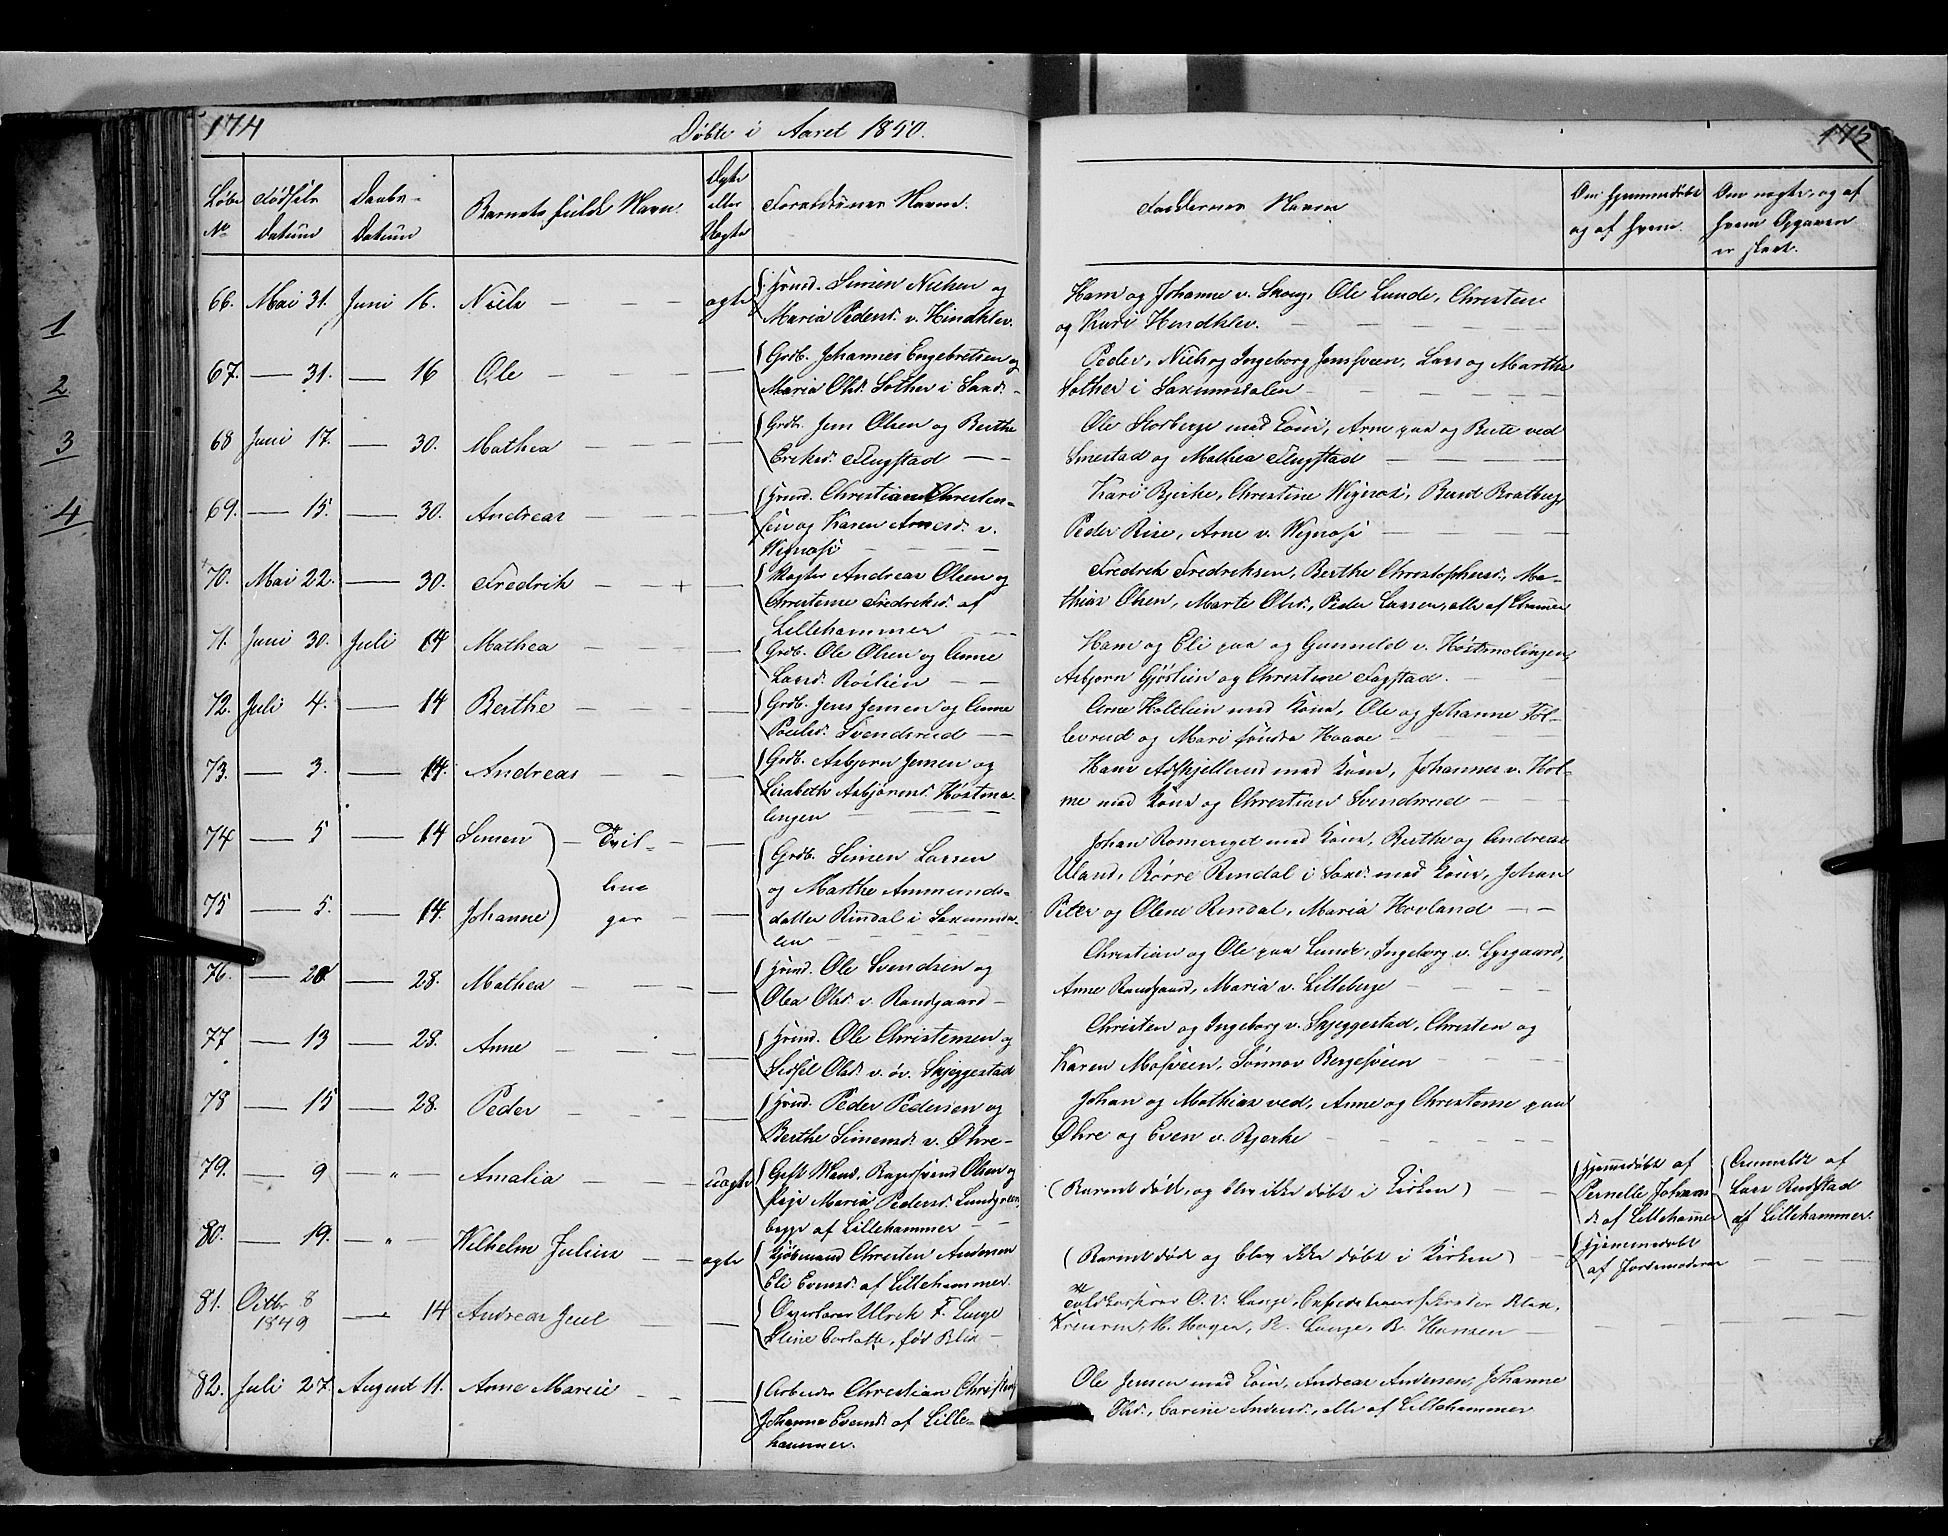 174
Døbte i Aaret 1850.
Løbe No
Fødsels Datum
Daabs-Datum
Barnets fulde Navn.
Ægte eller Uægte
Forældrenes Navne.
66. Mai 31. Juni 16. Niels — — — ægte Huusm. Simen Nielsen og
Maria Pedersd. v. Hindklev.
67. — 31. — 16 Ole — — — — Grdb. Johannes Engebretsen og
Maria Olsd. Sother i Saxd. —
68 Juni 17. — 30. Mathea — — — Grdb. Jens Olsen og Berthe
Eriksd. Flugstad — —
69. — 15. — 30. Andreas — — — Huusm. Christian Christen-
sen og Karen Arnesd. v.
Wignæs — — —
70. Mai 22. — 30. Fredrik — — + — Andreas Olsen og
Christine Fredriksd. af
Lillehammer — —
71. Juni 30. Juli 14 Mathea — — — Grdb. Ole Olsen og Anne
Larsd. Roelien — —
72. Juli 4. — 14 Berthe — — — Grdb. Jens Jensen og Anne
Poulsd. Svendsrud — —
73. — 3. — 14. Andreas — — — Grdb. Asbjørn Jensen og
Lisabeth Asbjørnsd. Høstmæ-
lingen — — —
74 — 5 — 14 Simen — Tvil- — Grdb. Simen Larsen
og Marthe Ammunds-
75 — 5. — 14. Johanne lin- ger — datter Rindal i Saxumsda-
len — —
76. — 20 — 28. Mathea — — — Huusm. Ole Svendsen og
Olea Olsd. v. Randgaard —
77 — 13 — 28. Anne — — — Huusm. Ole Christensen og
Sidsel Olsd. v. øv. Skjeggestad
78 — 15 — 28. Peder — — — Huusm. Peder Pedersen og
Berthe Simensd. v. Øhre —
79. — 9 — " — Amalia — — uægte Gift Mand. Olsen og
Pige Maria Pedersd. Lundgreen
begge af Lillehammer — —
80. — 19. — " — Wilhelm Julius — — ægte Kjøbmand Christen Andersen
Eli Evensd. af Lillehammer.
81. Octbr 8 1849 — 14 Andreas Juel — — Ulrik F. Lange
født Blix —
82. Juli 27. August 11. Anne Marie — — Arbeider Christian Christens.
Johanne Evensd. af Lille-
hammer.
175
Faddernes Navne
Om hjemmedøbt og af hvem.
Om uægte, og af hvem Opgaven er skeet.
Hans og Johanne v. Skoug, Ole Lunde, Christen
og Kari Hendklev. — — — —
Peder, Niels og Ingeborg Jensveen, Lars og Marthe
Sother i Saxumsdalen — — —
Ole Storberge med Kone, Arne paa og Beite ved
Smestad og Mathea Flugstad — — —
Kari Bjerke, Christine Wignæs, Bernt Bratberg,
Peder Rise, Arne v. Wignæs — — —
Fredrik Fredriksen, Berthe Christophersd., Ma-
thias Olsen, Marte Olsd., Peder Larsen, alle af Lhammer
Hans og Eli paa og Gunnild v. Høstmælingen,
Asbjørn Gjøslien og Christine Fagstad. — —
Arne Holtlien med Kone, Ole og Johanne Fol-
levrud og Mari søndre Haave — —
Hans Adskjellerud med Kone, Johannes v. Hol-
me med Kone og Christian Svendsrud — —
Johan Romeriget med Kone, Berthe og Andreas
Uland, Børre Rindal i Saxd. med Kone, Johan
Peter og Olene Rindal, Maria Hovland — —
Christian og Ole paa Lunde, Ingeborg v. Lysgaard,
Anne Randgaard, Maria v. Lilleberge — —
Christen og Ingeborg v. Skjeggestad, Christen og
Karen Mosveen, Sønnov Bergesveen — —
Johan og Mathias ved, Anne og Christine paa
Øhre og Even v. Bjerke — — —
(Barnet død, og blev ikke døbt i Kirken) —
Hjemmedøbt af
Pernelle Johans
d. af Lillehammer
Anmeldt af
Lars Rudstad
af Lillehammer.
(Barnet død og blev ikke døbt i Kirken) —
Hjemmedøbt
af Jordemoderen
O. V. Lange, Blix,
H. Hagen, B. Lange, B. Hansen —
Ole Jensen med Kone, Andreas Andersen, Johanne
Olsd., Carine Andersd., alle af Lillehammer
1
2
3
4